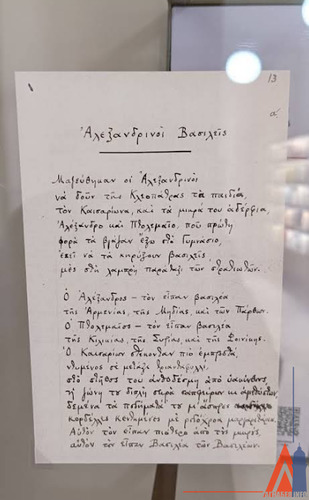 13
α'
Ἀλεξανδρινοὶ Βασιλεῖς
Μαζεύθηκαν οἱ Ἀλεξανδρινοὶ
νὰ δοῦν τῆς Κλεοπάτρας τὰ παιδιά,
τὸν Καισαρίωνα, καὶ τὰ μικρά του ἀδέρφια,
Ἀλέξανδρο καὶ Πτολεμαῖο, ποὺ πρώτη
φορὰ τὰ βγάζαν ἔξω στὸ Γυμνάσιο,
ἐκεῖ νὰ τὰ κηρύξουν βασιλεῖς,
μὲς στὴ λαμπρὴ παράταξι τῶν στρατιωτῶν.
Ὁ Ἀλέξανδρος — τὸν εἶπαν βασιλέα
τῆς Ἀρμενίας, τῆς Μηδίας, καὶ τῶν Πάρθων.
Ὁ Πτολεμαῖος — τὸν εἶπαν βασιλέα
τῆς Κιλικίας, τῆς Συρίας, καὶ τῆς Φοινίκης.
Ὁ Καισαρίων στέκονταν πιὸ ἐμπροστά,
ντυμένος σὲ μετάξι τριανταφυλλί,
στὸ στῆθος του ἀνθοδέσμη ἀπὸ ὑακίνθους,
ἡ ζώνη του διπλῆ σειρὰ σαπφείρων κι ἀμεθύστων,
δεμένα τὰ ποδήματά του μ' ἄσπρες
κορδέλλες κεντημένες μὲ ῥοδόχροα μαργαριτάρια.
Αὐτὸν τὸν εἶπαν πιότερο ἀπὸ τοὺς μικρούς,
αὐτὸν τὸν εἶπαν Βασιλέα τῶν Βασιλέων.